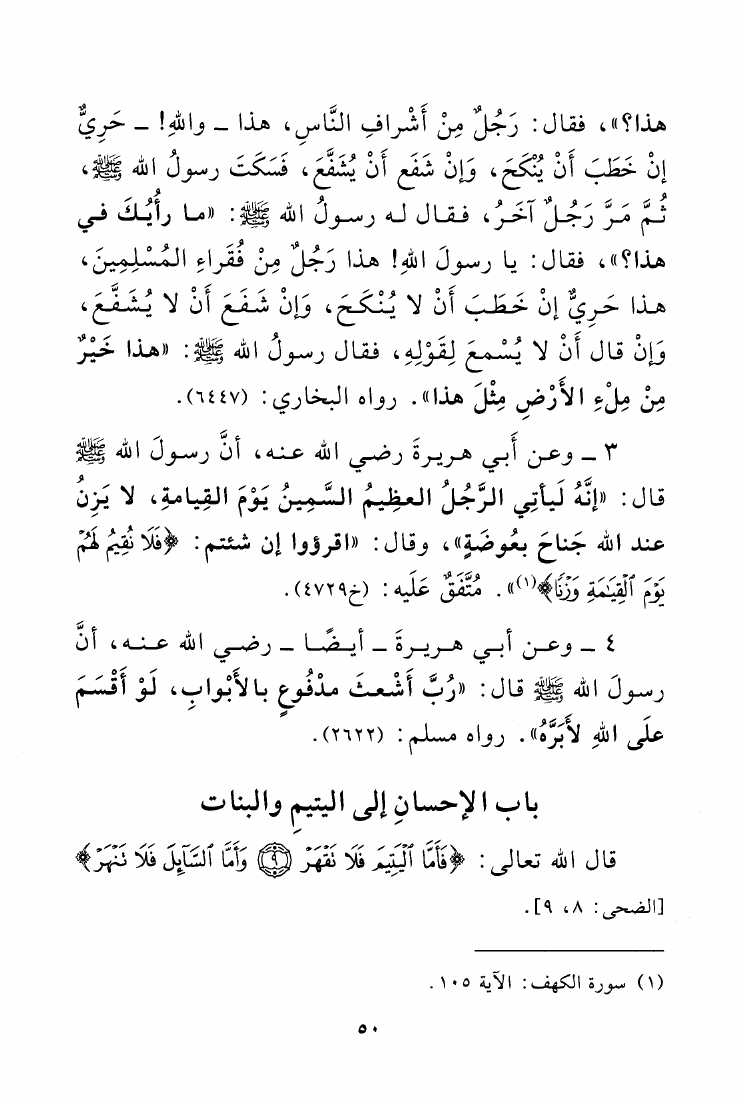 هذا؟»، فقال: رَجُلٌ مِنْ أَشْرافِ النَّاسِ، هذا ـ واللهِ! ـ حَرِيٌّ
إنْ خَطَبَ أَنْ يُنْكَحَ، وَإنْ شَفَع أَنْ يُشَفَّعَ، فَسَكَتَ رسولُ الله ﷺ،
ثُمَّ مَرَّ رَجُلٌ آخَرُ، فقال له رسولُ الله ﷺ: «ما رأيُكَ في
هذا؟»، فقال: يا رسولَ اللهِ! هذا رَجُلٌ مِنْ فُقَراءِ المُسْلِمِينَ،
هذا حَرِيٌّ إنْ خَطَبَ أَنْ لا يُنْكَحَ، وَإنْ شَفَعَ أَنْ لا يُشَفَّعَ،
وَإنْ قال أَنْ لا يُسْمعَ لِقَوْلِهِ، فقال رسولُ الله ﷺ: «هذا خَيْرٌ
مِنْ مِلْءِ الأَرْضِ مِثْلَ هذا». رواه البخاري: (٦٤٤٧).
٣ ـ وعن أَبي هريرةَ رضي الله عنه، أنَّ رسولَ الله ﷺ
قال: «إنَّهُ لَيأتِي الرَّجُلُ العظِيمُ السَّمِينُ يَوْمَ القِيامةِ، لا يَزِنُ
عند الله جَناحَ بعُوضَةٍ»، وقال: «اقرؤوا إن شئتم: ﴿فَلَا نُقِيمُ لَهُمْ
يَوْمَ ٱلْقِيَٰمَةِ وَزْنًا﴾(١)». مُتَّفَقٌ عَلَيه: (خ٤٧٢٩).
٤ ـ وعن أبي هريرةَ ـ أيضًا ـ رضي الله عنه، أنَّ
رسولَ الله ﷺ قال: «رُبَّ أشْعثَ مدْفُوعٍ بالأَبْوابِ، لَوْ أَقْسَمَ
علَى اللهِ لأَبَرَّهُ». رواه مسلم: (٢٦٢٢).
باب الإحسانِ إلى اليتيمِ والبنات
قال الله تعالى: ﴿فَأَمَّا ٱلْيَتِيمَ فَلَا تَقْهَرْ ۝٩ وَأَمَّا ٱلسَّآئِلَ فَلَا تَنْهَرْ﴾
[الضحى: ٨، ٩].
(١) سورة الكهف: الآية ١٠٥.
٥٠